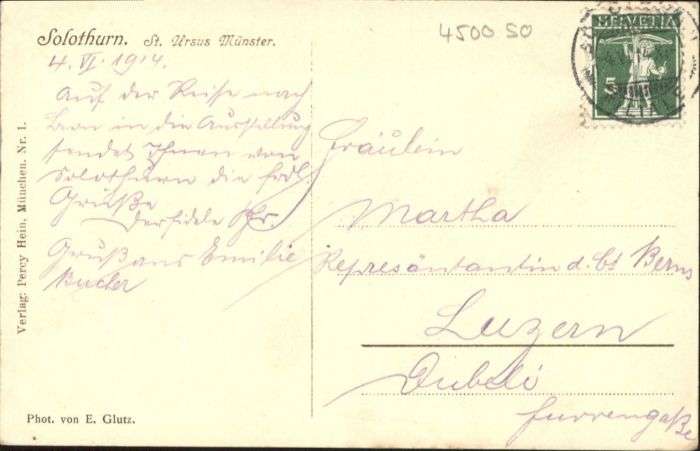 Solothurn. St. Ursus Münster.
4500 SO
HELVETIA
5
4. VI. 1914.
Auf der Reise nach
Bern in die Ausstellung
sendet Ihnen von
Solothurn die frdl.
Grüße
Der fidele
Gruß aus Emilie
Fräulein
Martha
Represäntantin d. bt Berns
Luzern
Dubeli
furrengaße
Verlag: Percy Hein, München. Nr. 1.
Phot. von E. Glutz.